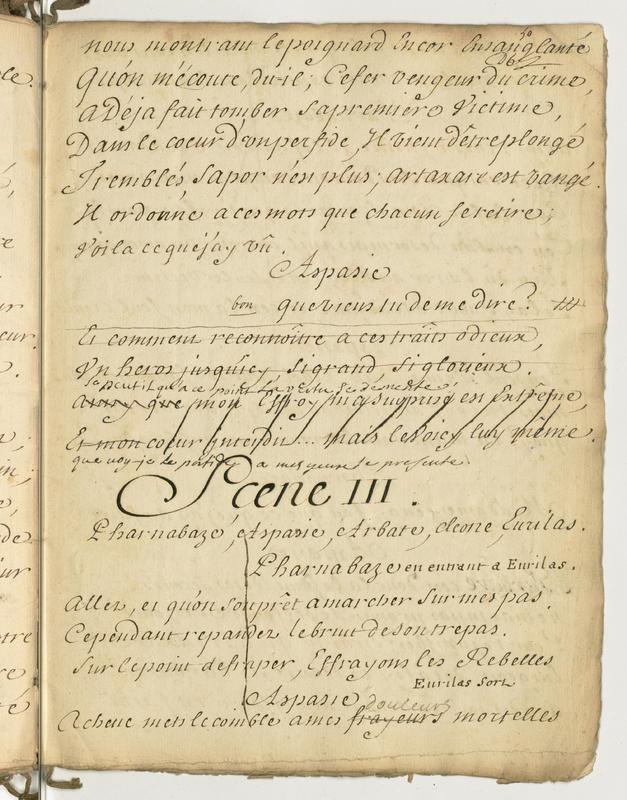 nous montrant lepoignard Encor Ensanglanté
Qu'on m'écoute, dit-il; Ce fer vengeur du crime,
a Déja fait tomber sa premiere Victime,
Dans le coeur d'un perfide, Il vient d'être plongé
Tremblés, Sapor n'est plus; artaxare est vangé.
Il ordonne a ces mots que chacun se retire;
Voila ce que j'ay vû.
Aspasie
bon que viens tu de me dire?
Et comment reconnoître a ces traits odieux,
Un heros jusqu'icy si grand, si glorieux.
se peut il qu'a ce point sa vertu se demente!
que mon Effroy ma surprise en Extrême,
Et mon coeur interdit... mais le voicy luy même.
que voy-je le perfide a mes yeux se presente.
Scene III.
Pharnabaze, Aspasie, Arbate, cleone, Eurilas.
Pharnabaze en entrant a Eurilas.
Allez, et qu'on soit prêt a marcher sur mes pas.
Cependant repandez le bruit de son trepas.
Sur le point de fraper, Effrayons les Rebelles
Eurilas sort
Aspasie
douleurs
Acheve mets le comble a mes frayeurs mortelles